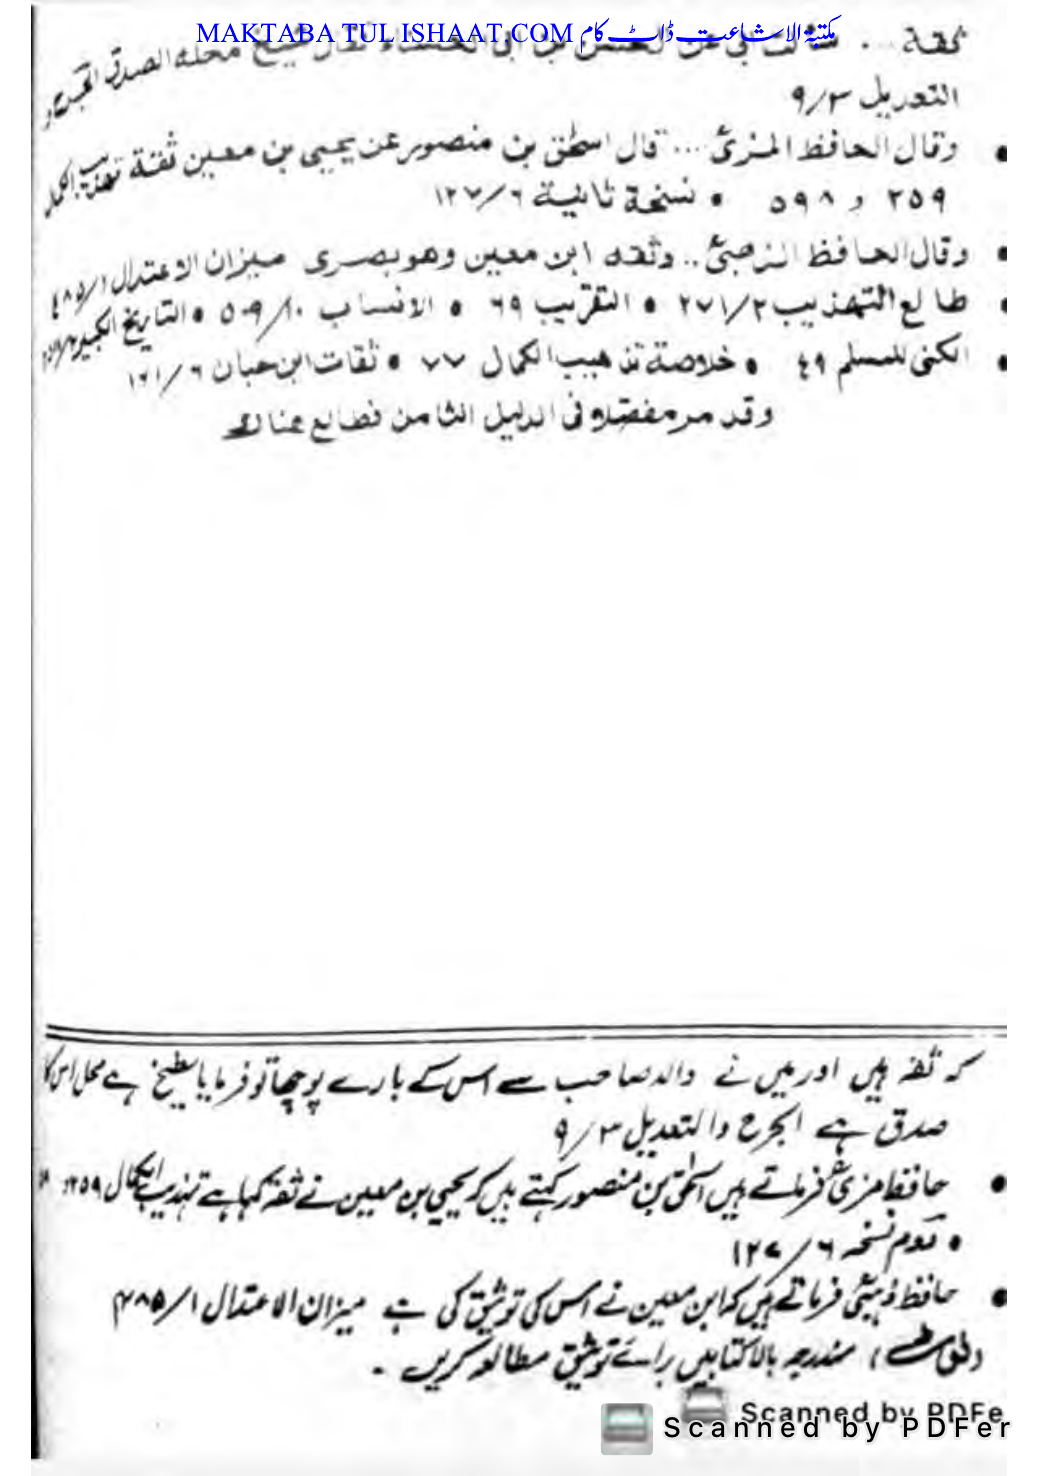 MAKTABA TUL ISHAAT.COM مکتبۃ الاشاعت ڈاٹ کام
ثقة... سألت أبي عن الحسن بن أبي الحسناء فقال شيخ محله الصدق الجرح و
التعديل ٩/٣
• وقال الحافظ المزيّ ... قال اسحٰق بن منصور عن يحيى بن معين ثقة تهذيب الكمال
٢٥٩ و ٥٩٨ • نسخة ثانية ١٢٧/٦
• وقال الحافظ الذهبيّ .. وثقه ابن معين وهو بصرى ميزان الاعتدال ٤٨٥/١
• طالع التهذيب ٢٧١/٢ • التقريب ٦٩ • الانساب ٥٠٩/١٠ • التاريخ الكبير
• الكنى للمسلم ٤٩ • خلاصة تذهيب الكمال ٧٧ • ثقات ابن حبان ١٦١/٦
وقد مر مفصلا في الدليل الثامن فطالع هناك
کہ ثقہ ہیں اور میں نے والد صاحب سے اس کے بارے پوچھا تو فرمایا شیخ ہے محل اس کا
صدق ہے الجرح والتعدیل ٩/٣
• حافظ مزیؒ فرماتے ہیں اسحٰق بن منصور کہتے ہیں کہ یحیی بن معین نے ثقہ کہا ہے تہذیب الکمال ٢٥٩
• دوم نسخہ ١٢٧/٦
• حافظ ذہبیؒ فرماتے ہیں کہ ابن معین نے اس کی توثیق کی ہے میزان الاعتدال ٤٨٥/١
(نوٹ) مندرجہ بالا کتابیں برائے توثیق مطالعہ کریں ۔
Scanned by PDFe
Scanned by PDFer